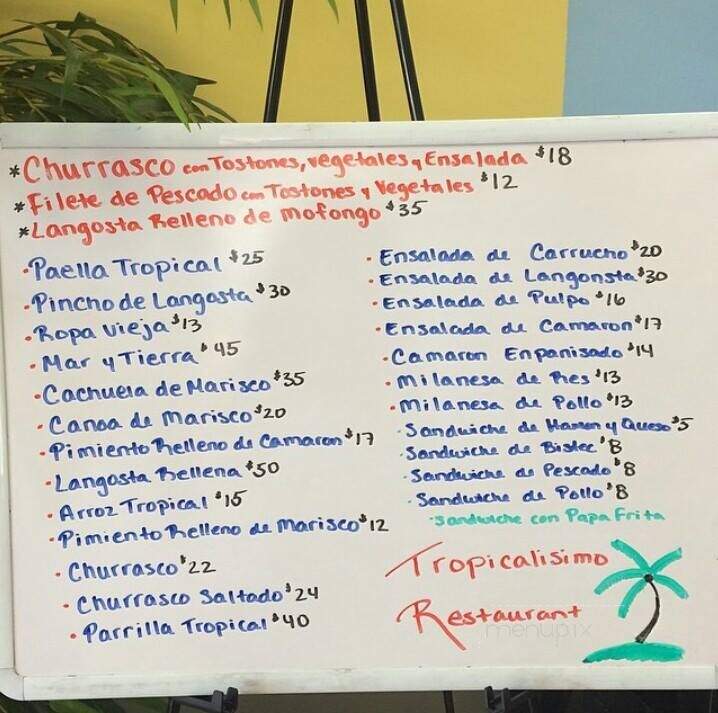 *Churrasco con Tostones, vegetales y Ensalada $18
*Filete de Pescado con Tostones y Vegetales $12
*Langosta Relleno de mofongo $35
·Paella Tropical $25
·Pincho de Langosta $30
·Ropa vieja $13
·Mar y Tierra $45
·Cachuela de Marisco $35
·Canoa de Marisco $20
·Pimiento Relleno de Camaron $17
·Langosta Rellena $50
·Arroz Tropical $15
·Pimiento Relleno de Marisco $12
·Churrasco $22
·Churrasco Saltado $24
·Parrilla Tropical $40
·Ensalada de Carrucho $20
·Ensalada de Langonsta $30
·Ensalada de Pulpo $16
·Ensalada de Camaron $17
·Camaron Enpanisado $14
·Milanesa de Res $13
·Milanesa de Pollo $13
·Sanduiche de Hamon y Queso $5
·Sanduiche de Bistec $8
·Sanduiche de Pescado $8
·Sanduiche de Pollo $8
·Sanduiche con Papa Frita
Tropicalisimo
Restaurant
menupix